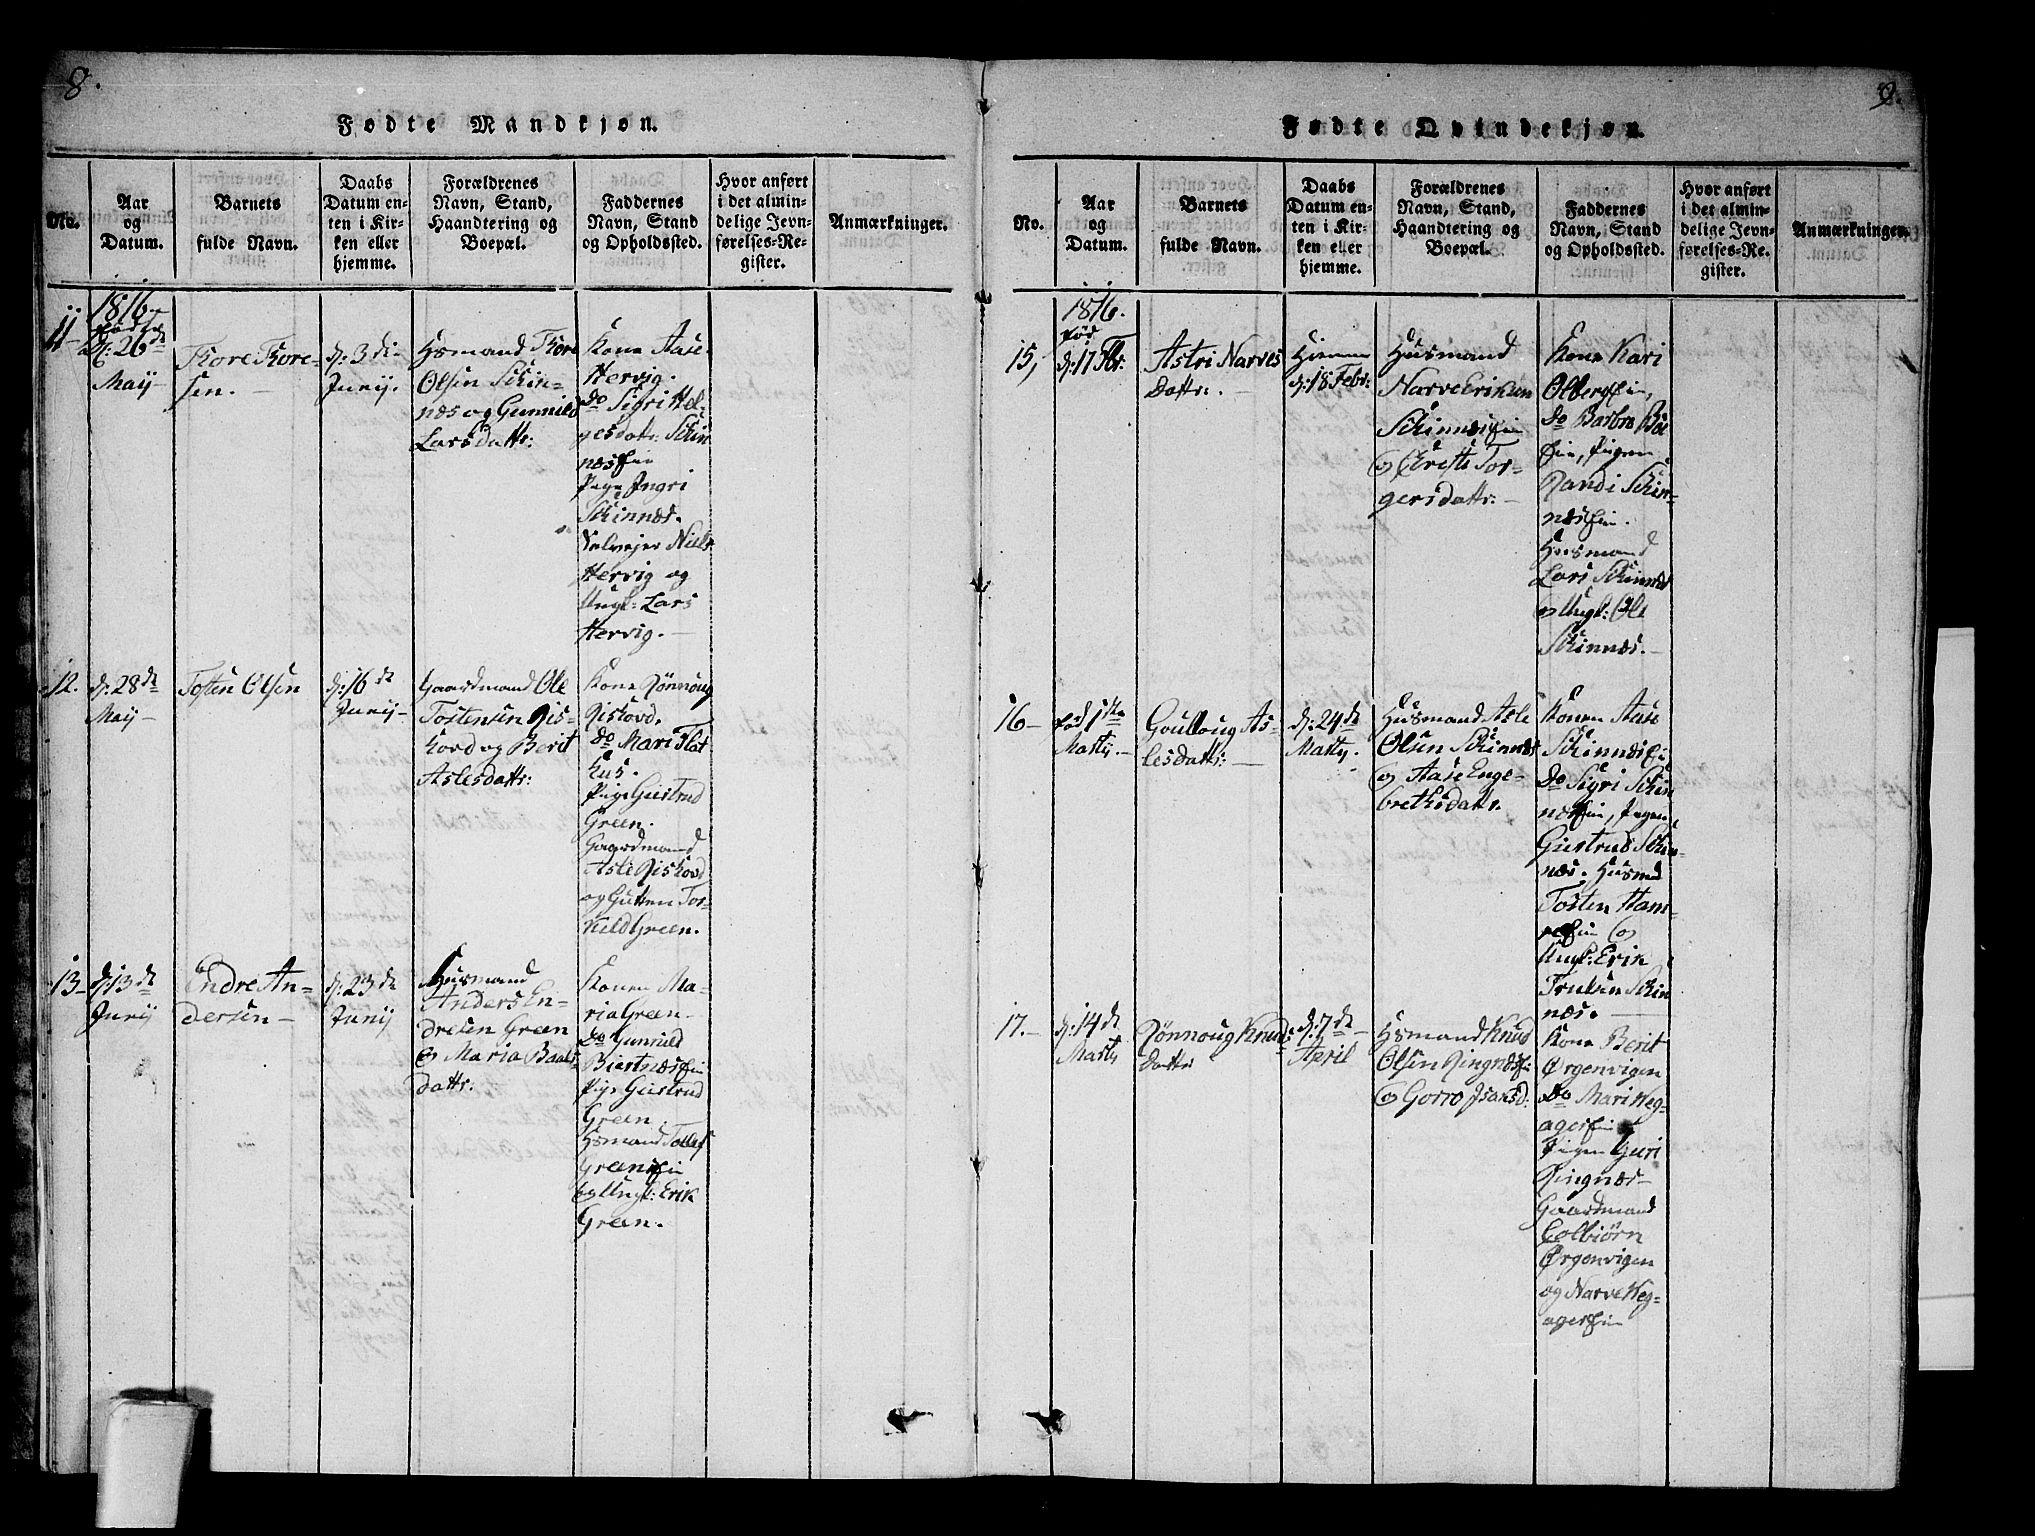 8.
Fødte Mandkjøn.
No.
Aar
og
Datum.
Barnets
fulde Navn.
Daabs
Datum en-
ten i Kir-
ken eller
hjemme.
Forældrenes
Navn, Stand,
Haandtering og
Boepæl.
Faddernes
Navn, Stand
og Opholdssted.
Hvor anført
i det almin-
delige Jevn-
førelses-Re-
gister.
Anmærkninger.
11-
1816.
født
d: 26de
Maij
Tore Tore-
sen.
d: 3di
Junij.
Hsmand Tore
Olsen Skin-
næs og Gunnild
Larsdattr:
Kone Aase
Hervig.
do Sigri Hel-
gesdattr: Skin
næs
Pige Ingri
Skinnæs.
Selvejer Niels
Hervig og
Ungk: Lars
Hervig.
12.
d: 28de
Maij
Tosten Olsen
d: 16de
Junij
Gaardmand Ole
Tostensen Ris-
kovd og Berit
Aslesdattr:
Kone Rønnoug
Riskovd.
do Mari Flat
hus.
Pige Giertrud
Green.
Gaardmand
Asle Riskovd
og Gutten Tor-
kild Green.
13-
d: 13de
Junij
Endre An-
dersen
d: 23de
Junij
Husmand
Anders En-
dresen Green
og Maria Baals
dattr:
Konen Ma-
ria Green
do Gunnild
Biertnæs
Pige Giertrud
Green.
Hsmand Tollef
Green
og Ungk: Erik
Green.
9.
Fødte Qvindekjøn.
No.
Aar
og
Datum.
Barnets
fulde Navn.
Daabs
Datum en-
ten i Kir-
ken eller
hjemme.
Forældrenes
Navn, Stand,
Haandtering og
Boepæl.
Faddernes
Navn, Stand
og Opholdssted.
Hvor anført
i det almin-
delige Jevn-
førelses-Re-
gister.
Anmærkninger.
15,
1816.
fød
d: 17 Fbr.
Astri Narves
Dattr.
Hiemme
d: 18 Febr:
Husmand
Narve Eriksen
Skinnæs
og Torgersdattr:
Kone Kari
Olberg
do Barbra Böe
Pigen
Randi Skin-
næs
Husmand
Lars Skinnæs
og Ungk: Ole
Skinnæs.
16-
fød 1ste
Martij.
Goulloug As-
lesdattr:
d: 24de
Martij.
Husmand Asle
Olsen Skinnæs
og Aase Enge-
brethsdattr.
Konen Aase
Skinnæs
do Sigri Skin
næs, Pigen
Giertrud Skin-
næs. Husmd
Tosten Ham-
og
Ungk: Erik
Trulsen Skin
næs.
17.
d: 14de
Martij
Rønnoug Knuds
Dattr
d: 7de
April
Hsmand Knud
Olsen Ringnæs
og Gorro
Kone Berit
Ørgenvigen
do Mari Heg-
ager
Pigen Guri
Ringnæs
Gaardmand
Colbiørn
Ørgenvigen
og Narve Heg-
ager